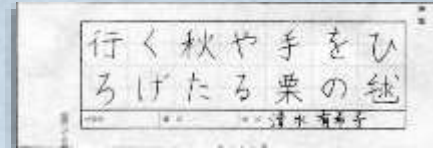 行く秋や手をひ
ろげたる栗の毬
清水